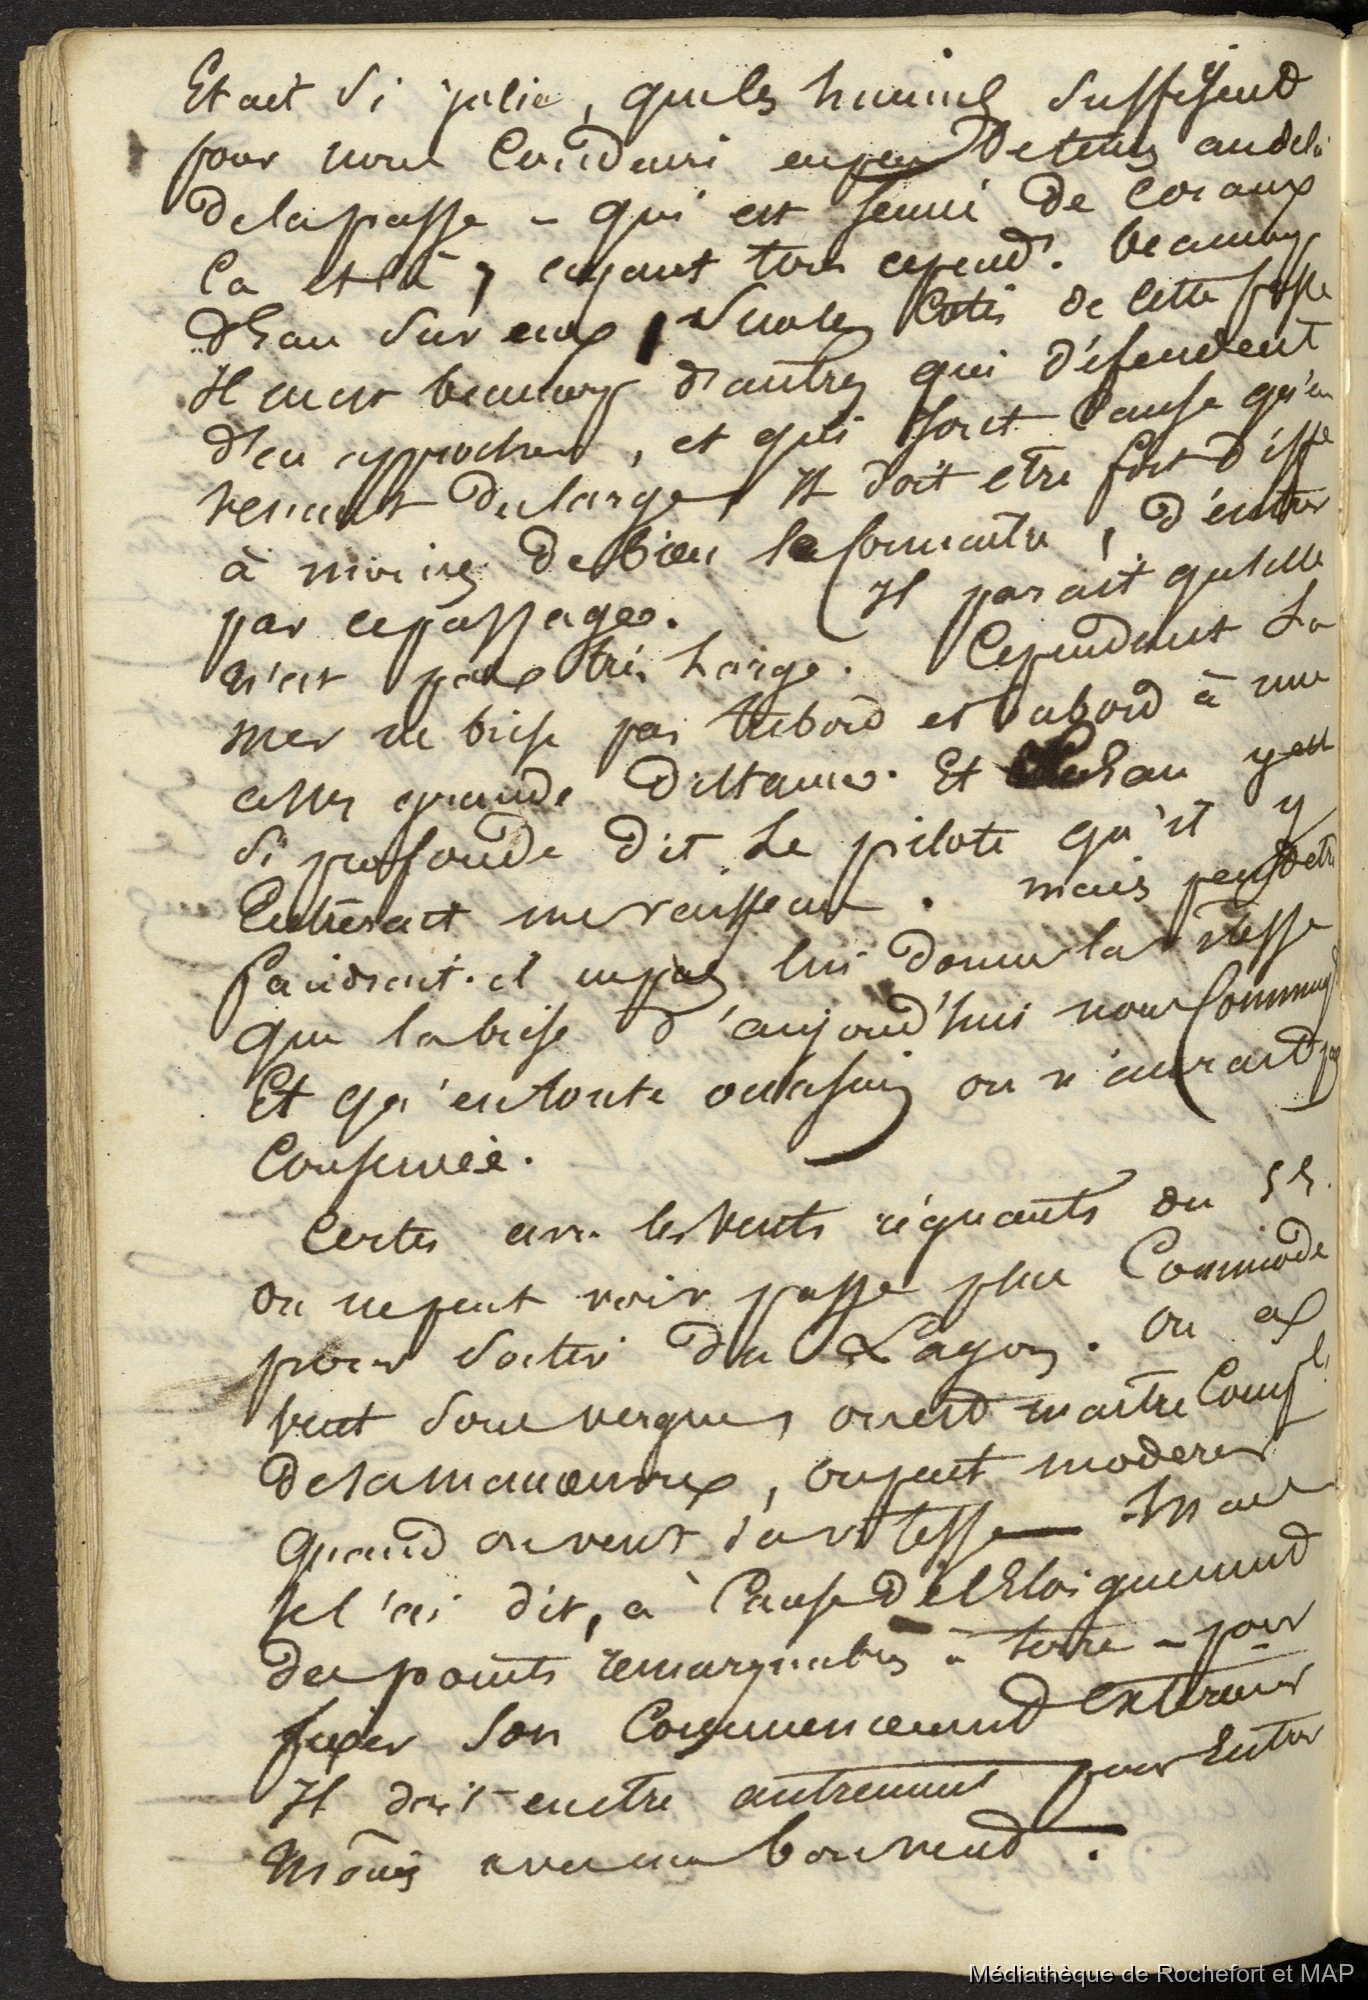 Etait si jolie, que les huniers suffisent
pour nous Conduire en peu de tems au delà
de la passe - qui est semée de Coraux
Ca et là, ayant tous cepend.t beaucoup
d'Eau sur eux, Sur les Cotés de cette passe
Il en est beaucoup d'autres qui défendent
d'en approcher, et qui font Cause qu'en
venant du large, Il doit etre fort diffle
à moins de bien la Connaitre, d'entrer
par ce passage. Il parait qu'elle
n'est pas très Large. Cependant La
mer ne brise pas tribord et babord à une
assez grande distance. Et l'Eau y est
si profonde dit Le pilote qu'il y
Entrerait un vaisseau. mais peut etre
faudrait-il un peu lui donner la vitesse
que la brise d'aujourd'hui nous
Et qu'en toute occasion on n'aurait pas
Conservée.
Certes avec les vents régnants du SE.
on ne peut voir passe plus Commode
pour sortir du Lagon. On a le
vent sous vergue, on est maitre
de sa manoeuvre, on peut moderer
quand on veut sa vitesse - Mais
Je l'ai dit, à Cause de l'Eloignement
des points remarquables à terre - pour
fixer Son Commencement Extérieur
Il doit en etre autrement pour Entrer
Même avec un bon vent.
Médiathèque de Rochefort et MAP